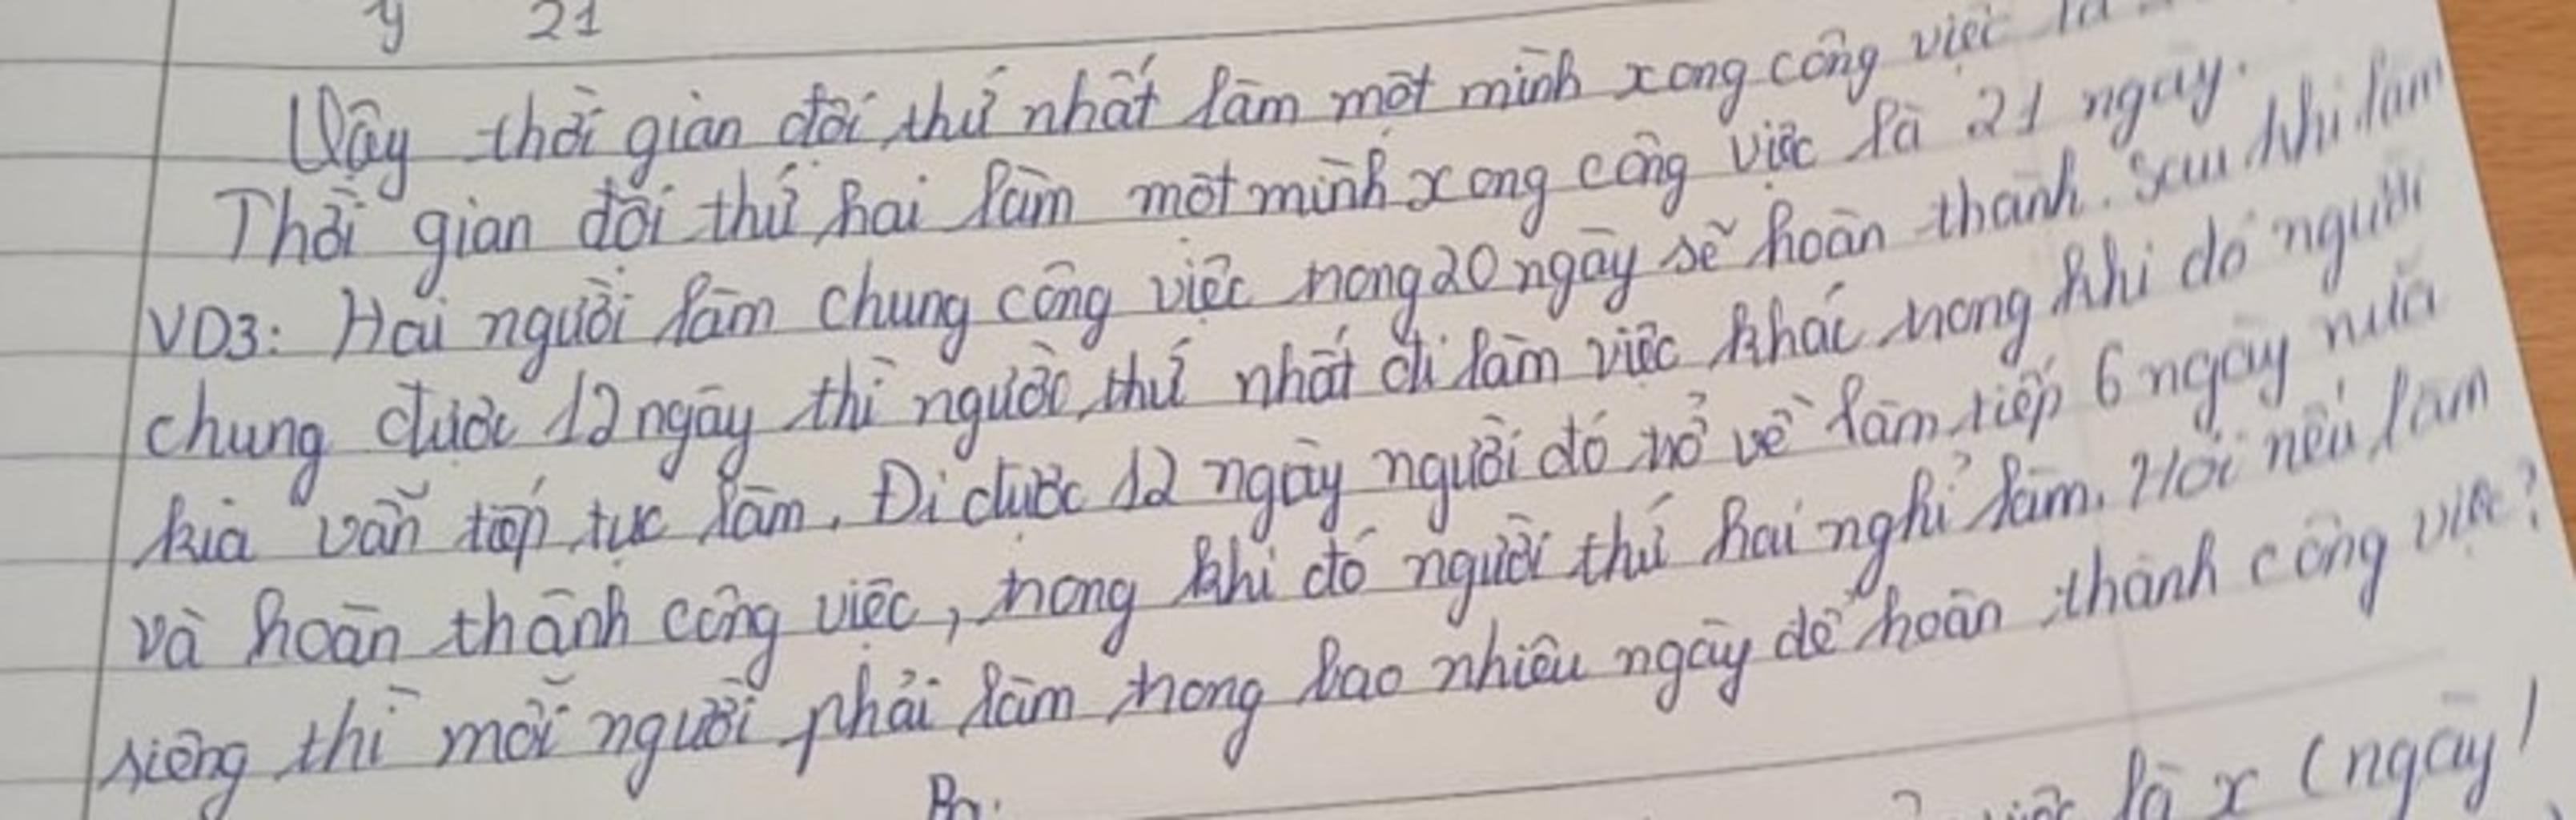 y 21
Vậy thời gian đội thứ nhất làm một mình xong công việc là
Thời gian đội thứ hai làm một mình xong công việc là 21 ngày.
VD3: Hai người làm chung công việc trong 20 ngày sẽ hoàn thành. Sau khi làm
chung được 12 ngày thì người thứ nhất đi làm việc khác trong khi đó người
kia vẫn tiếp tục làm. Đi được 12 ngày người đó trở về làm tiếp 6 ngày nữa
và hoàn thành công việc, trong khi đó người thứ hai nghỉ làm. Hỏi nếu làm
riêng thì mỗi người phải làm trong bao nhiêu ngày để hoàn thành công việc?
việc là x (ngày)